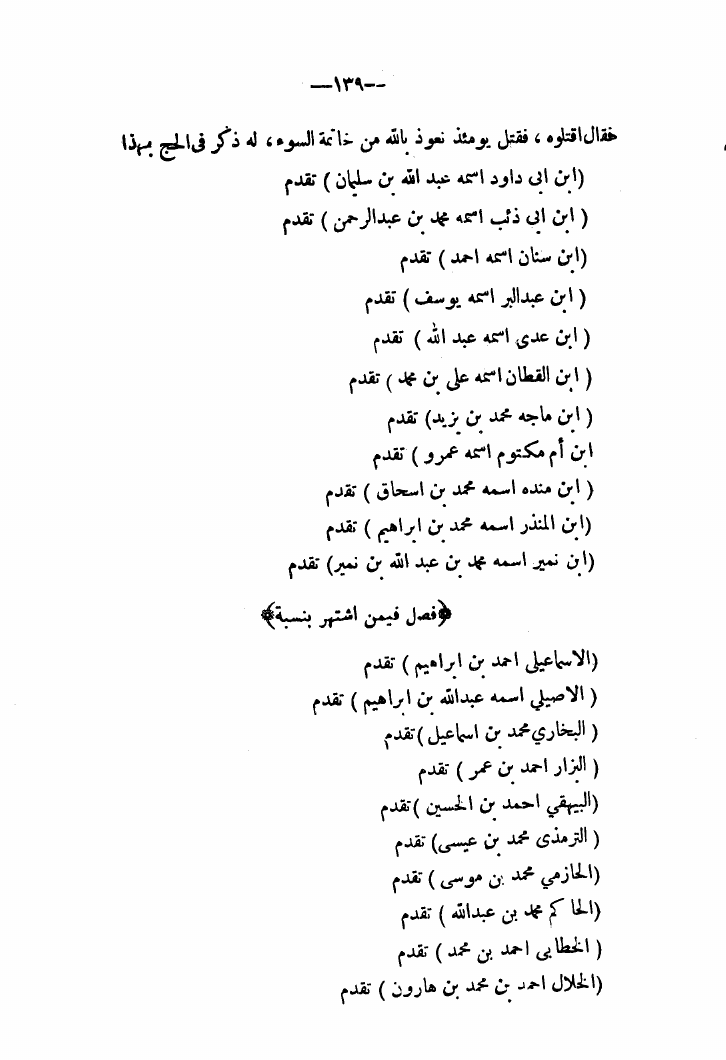 —١٣٩—
فقال اقتلوه ، فقتل يومئذ نعوذ بالله من خاتمة السوء ، له ذكر فى الحج بهذا
(ابن ابى داود اسمه عبد الله بن سليمان ) تقدم
( ابن ابى ذئب اسمه محمد بن عبدالرحمن ) تقدم
(ابن سنان اسمه احمد ) تقدم
( ابن عبدالبر اسمه يوسف ) تقدم
( ابن عدى اسمه عبد الله ) تقدم
( ابن القطان اسمه على بن محمد ) تقدم
( ابن ماجه محمد بن يزيد) تقدم
ابن أم مكتوم اسمه عمرو ) تقدم
( ابن منده اسمه محمد بن اسحاق ) تقدم
(ابن المنذر اسمه محمد بن ابراهيم ) تقدم
(ابن نمير اسمه محمد بن عبد الله بن نمير) تقدم
﴿فصل فيمن اشتهر بنسبة﴾
(الاسماعيلى احمد بن ابراهيم ) تقدم
( الاصيلي اسمه عبدالله بن ابراهيم ) تقدم
( البخاري محمد بن اسماعيل ) تقدم
( البزار احمد بن عمر ) تقدم
(البيهقي احمد بن الحسين ) تقدم
( الترمذى محمد بن عيسى) تقدم
(الحازمي محمد بن موسى ) تقدم
(الحاكم محمد بن عبدالله ) تقدم
( الخطابى احمد بن محمد ) تقدم
(الخلال احمد بن محمد بن هارون ) تقدم